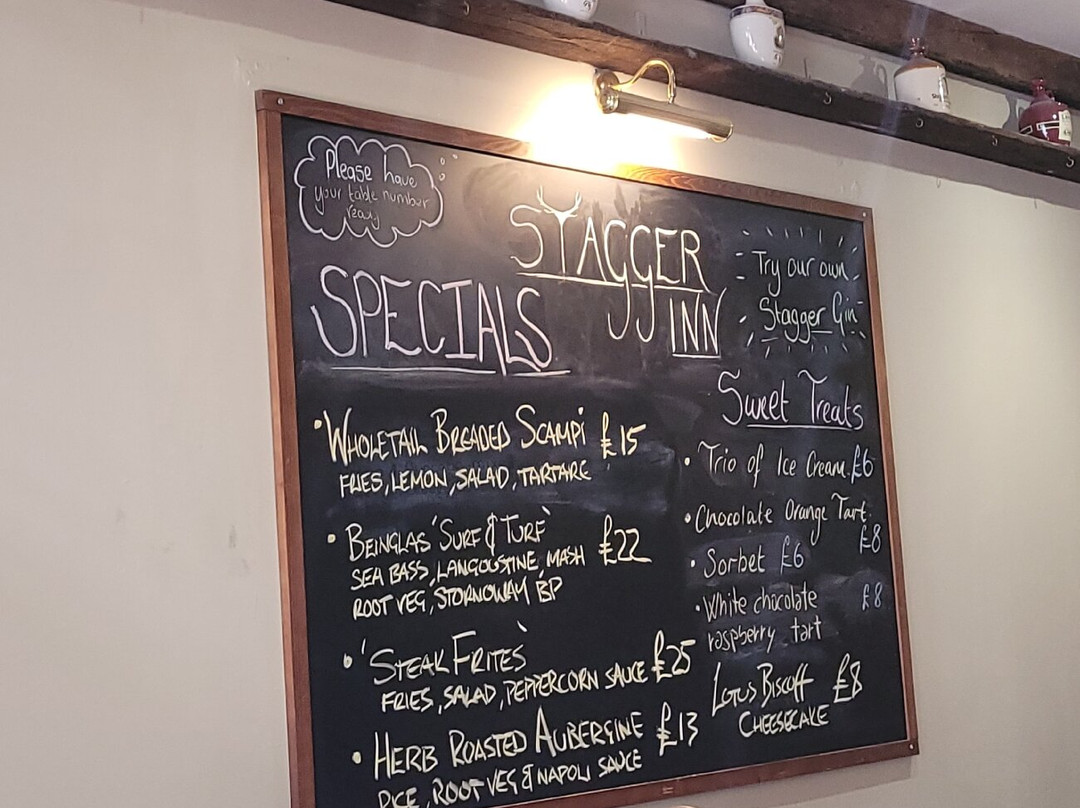 Please have
your table number
ready
STAGGER
INN
SPECIALS
Try our own
Stagger Gin
• WHOLETAIL BREADED SCAMPI £15
FRIES, LEMON, SALAD, TARTARE
• BEINGLAS 'SURF & TURF' £22
SEA BASS, LANGOUSTINE, MASH
ROOT VEG, STORNOWAY BP
• 'STEAK FRITES' £25
FRIES, SALAD, PEPPERCORN SAUCE
• HERB ROASTED AUBERGINE £13
RICE, ROOT VEG & NAPOLI SAUCE
Sweet Treats
• Trio of Ice Cream. £6
• Chocolate Orange Tart.
£8
• Sorbet £6
• White chocolate £8
raspberry tart
LOTUS BISCOFF £8
CHEESECAKE